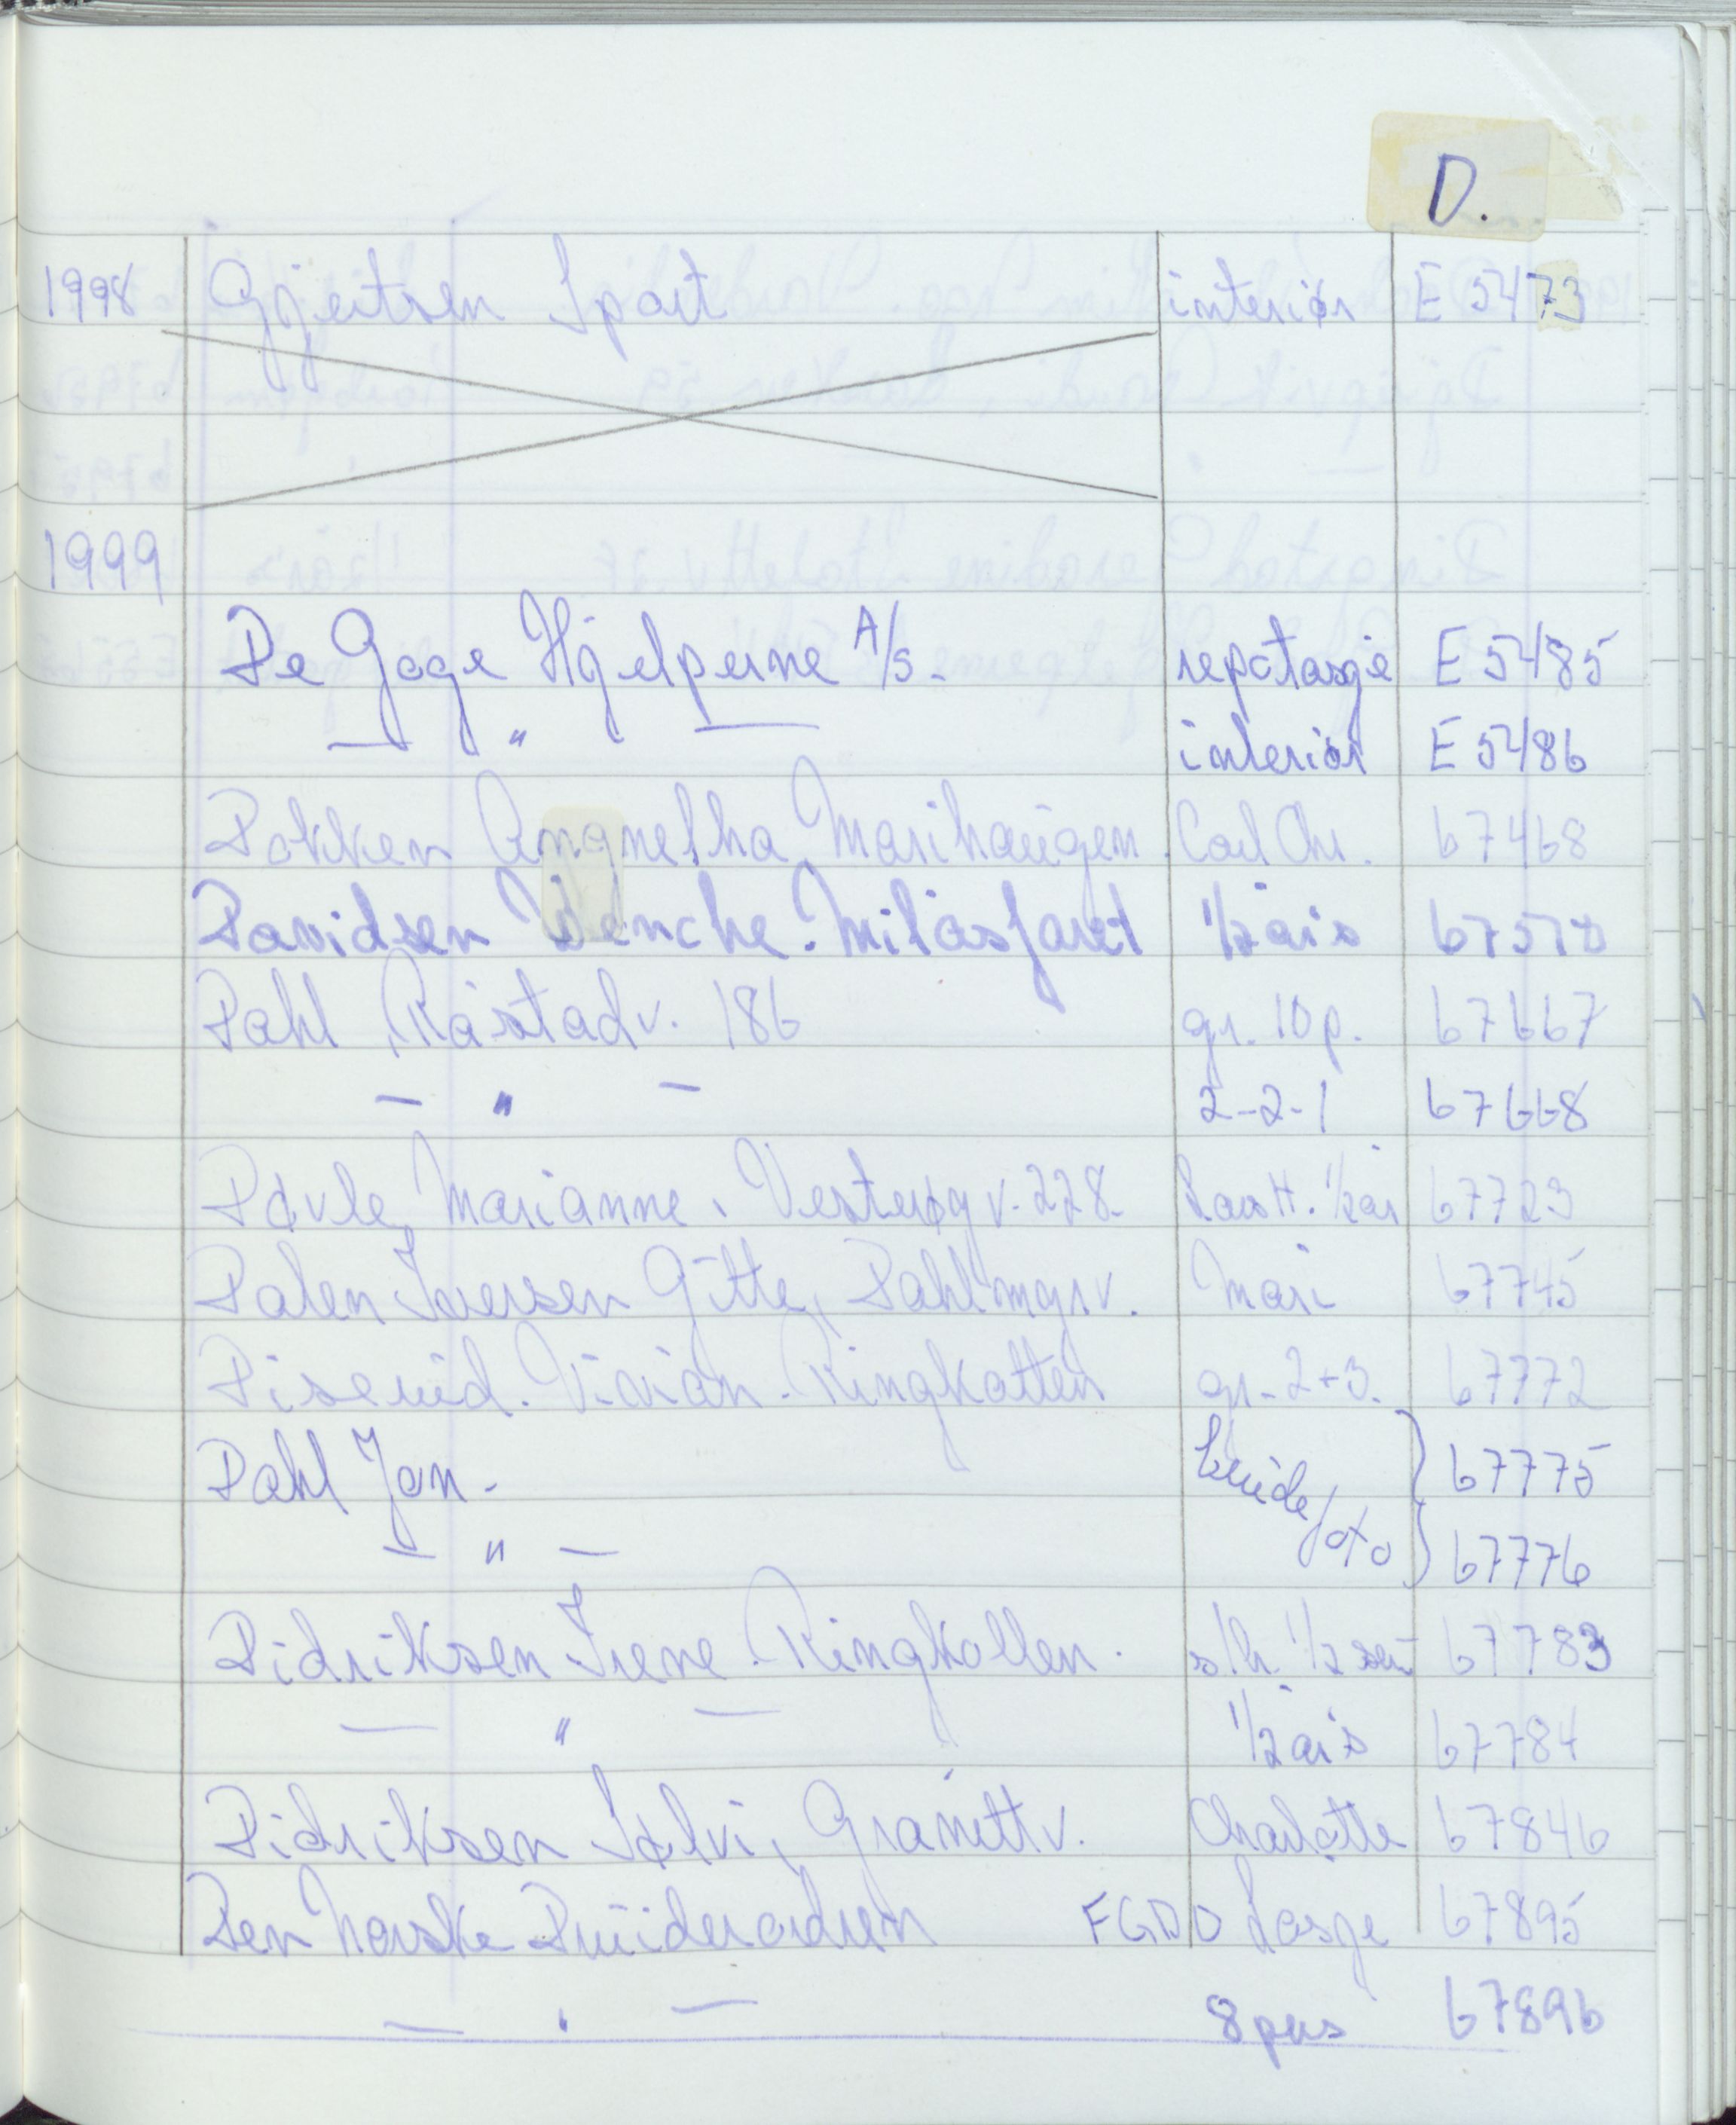 D.
1998 Gjertsen Sport interiør E 5473
1999
De Gode Hjelperne A/S. repotasje E 5485
— " — interiør E 5486
Dokken Angnetha, Marihaugen. Carl Chr. 67468
Davidsen Wenche. Milåsfaret 1/2 års 67570
Dahl, Råstadv. 186 gr. 10 p. 67667
— " — 2-2-1 67668
Døvle, Marianne, Vesterøyv. 228. Lars H. 1/2 år 67723
Dalen Iversen Gitte, Dahl mgrv. Mari 67745
Diserud. Vivian. Ringkollen gr. 2+3. 67772
Dahl Jan. brude 67775
— " — foto 67776
Didriksen Irene. Ringkollen. s/h. 1/2 67783
— " — 1/2 års 67784
Didriksen Sølvi, Granittv. Charlotte 67846
Den Norske Druideorden FGDO Losje 67895
— " — 8 pers 67896